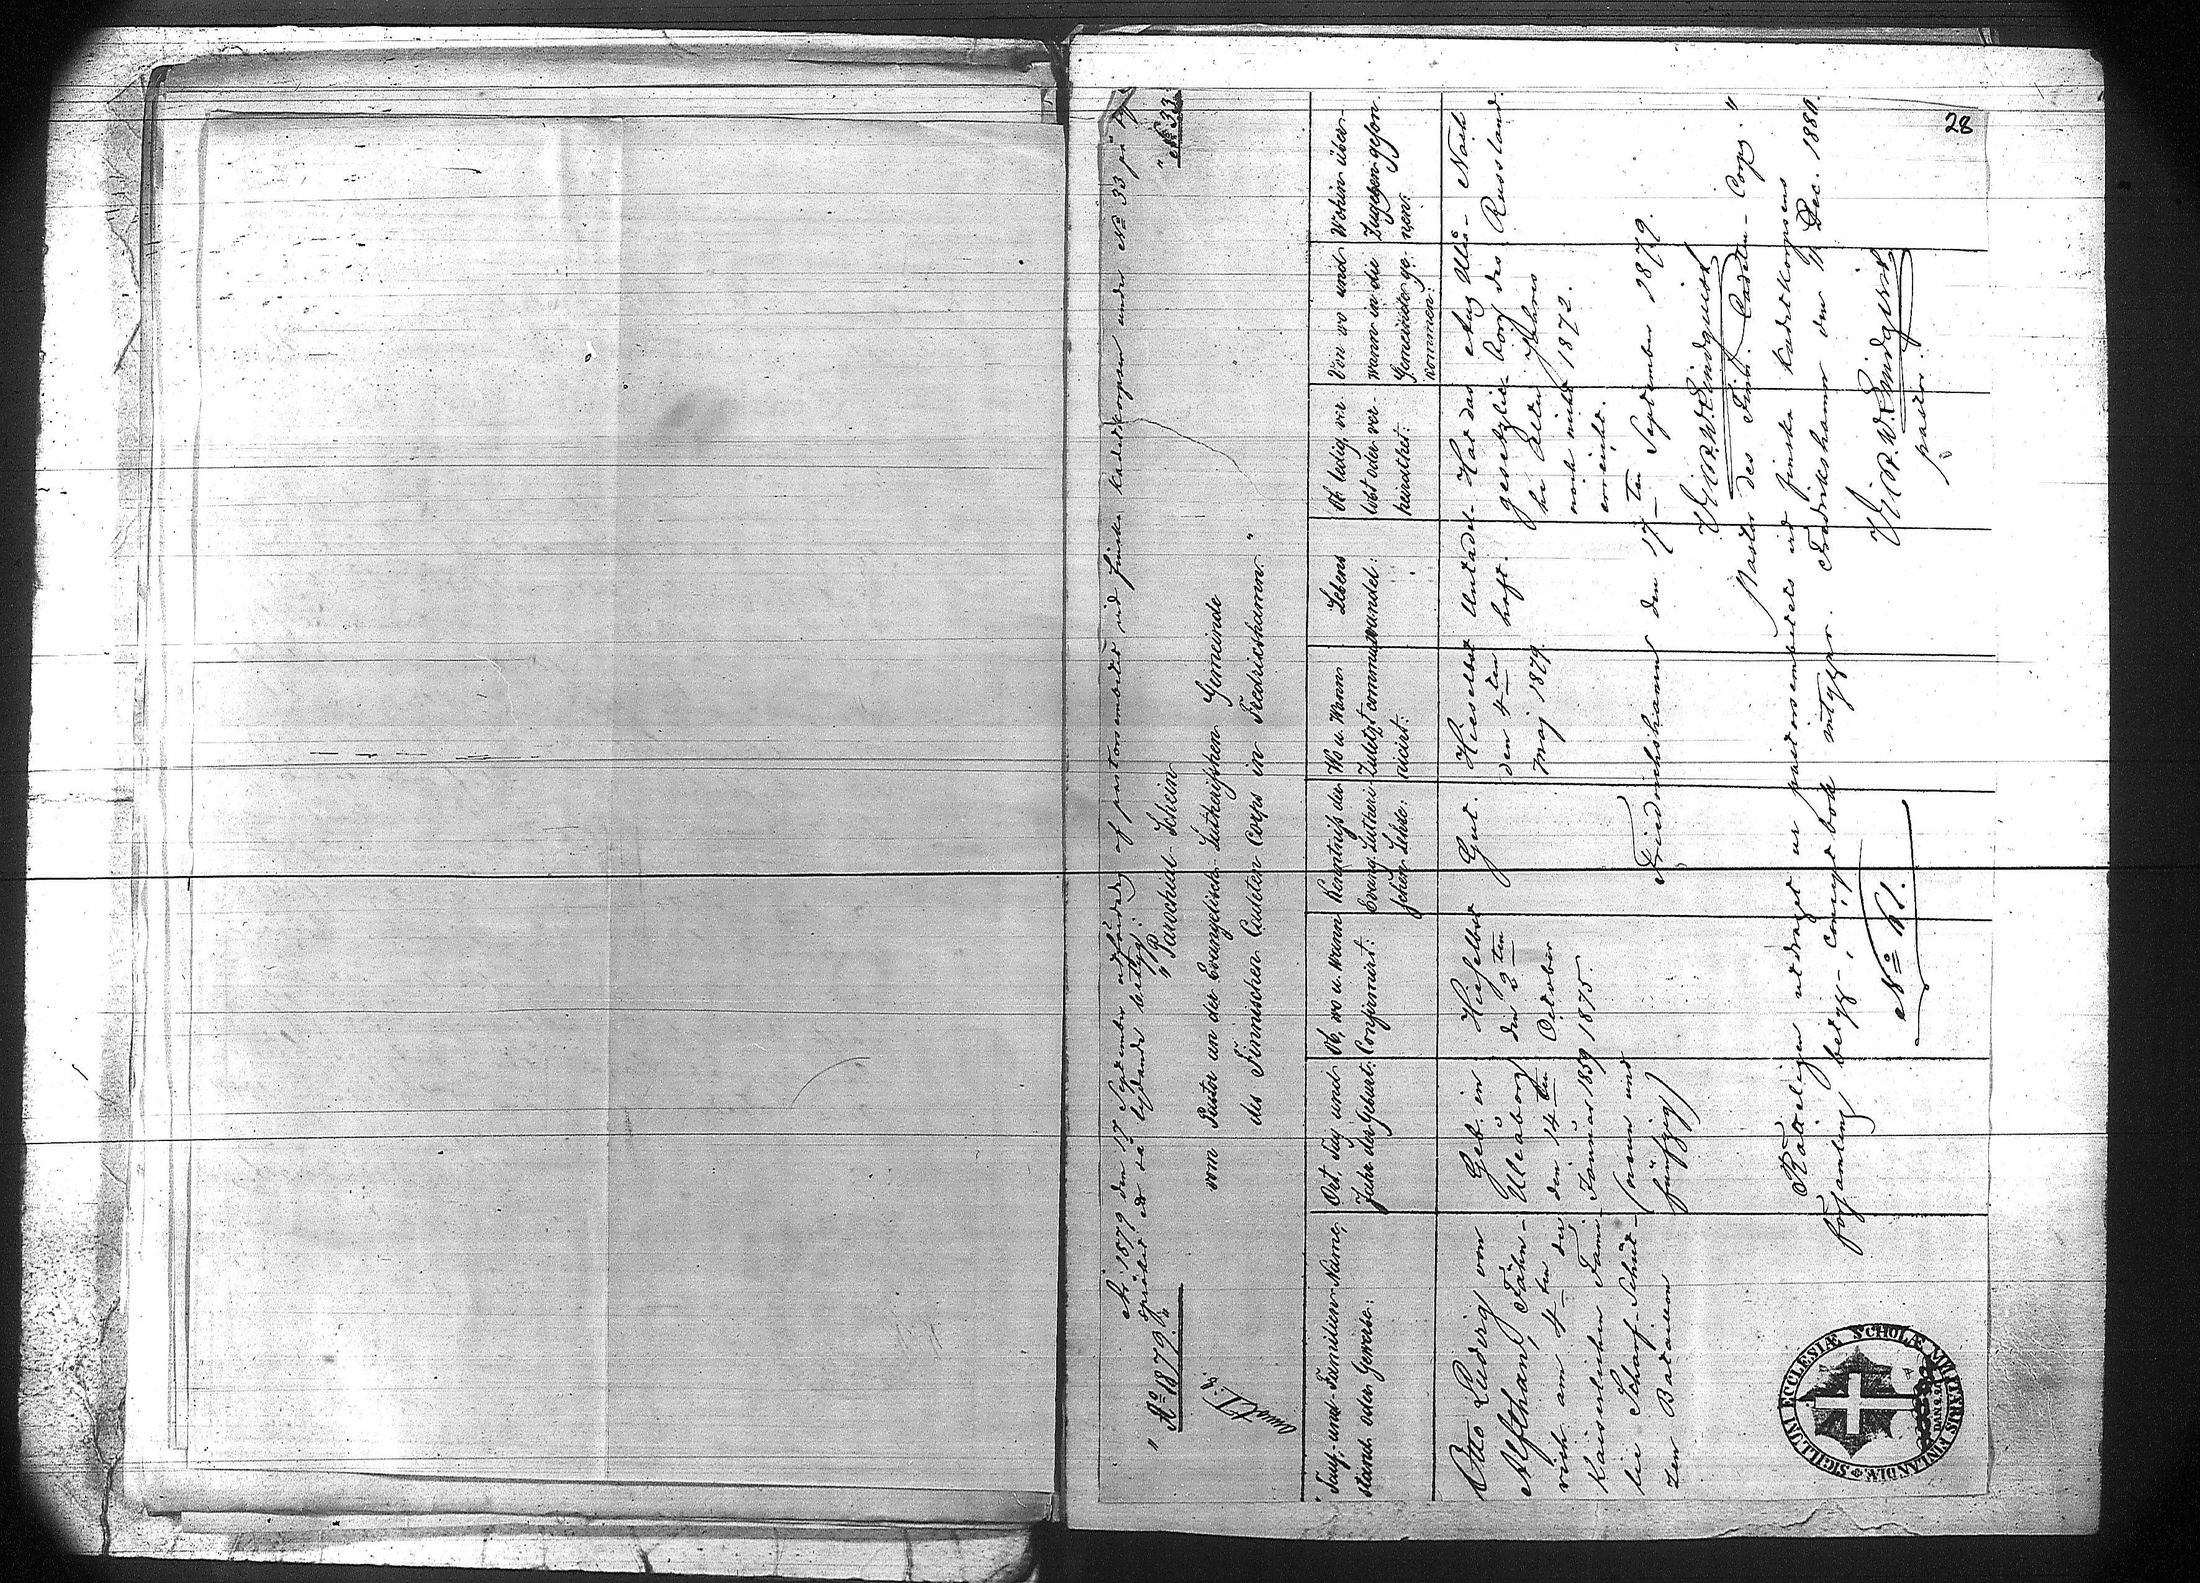 År 1879 den 17 September utfärdadt af pastorsembetet vid finska kadettkorpsen under N° 33 på
språket ett så lydande betyg:
"A° 1879."
"N° 33.
"Parochial-Schein
vom Pastor an der Evangelisch-Lutherischen Gemeinde
des Finnischen Cadetten-Corps in Fredricshamm."
Tauf- und Familien-Name,
stand oder Gewerbe:
Ort, Tag und
Jahr der Geburt:
Ob, wo u. wann
Confirmirt:
Kenntniss der
Evang. Lutheri-
schen Lehre:
Wo u. Wann
Zuletzt commu-
nicirt:
Lebens
wandel:
Ob ledig, ver-
lobt oder ver-
heirathet:
Von wo und
wann in die
Gemeinde ge-
kommen:
Wohin über-
Otto Ludvig von
Alfthan, Fähn-
rich am 4ten der
Kaiserlichen Fami-
lie Scharf-Schüt-
zen Bataillon
Geb. in
Uleåborg
den 14ten
Januar 1859
(neun und
fünfzig)
Hieselbst
den 2ten
October
1875.
Gut.
Hieselbst
den 4ten
Maj 1879.
Untadel-
haft.
Hat das
gesetzli-
che Alter
noch nicht
erreicht.
Aus Uleå-
borg des
Jahres
1872.
Nach
Russland.
Friedrichshamm den 17ten September 1879.
Pastor des Finn. Cadetten-Corps."
Rätteligen utdraget ur pastorsembetets vid finska kadettkorpsens
församling betygs-conceptbok intygar. Fredrikshamn den Dec. 1880.
pastor.
N° 61.
SIGILLUM ECCLESIÆ SCHOLÆ MILITARIS FINLANDIÆ
28